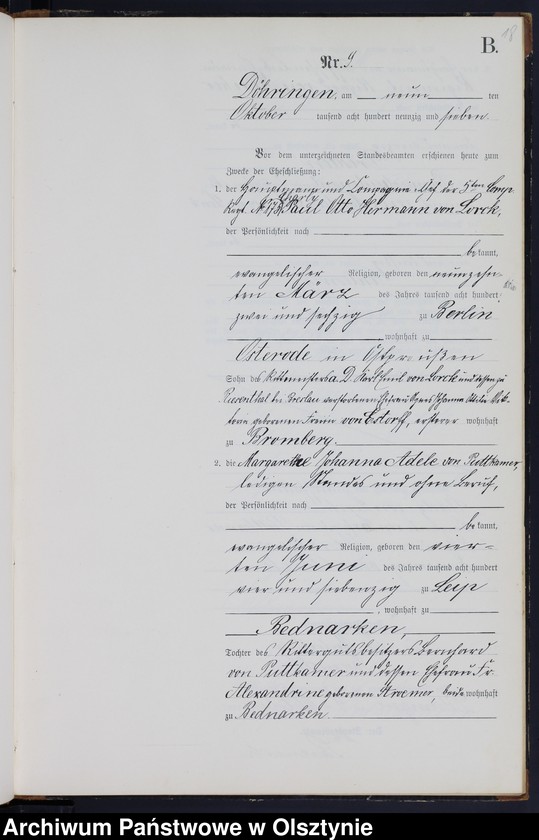 18
B.
Nr. 9.
Döhringen, am neun ten
Oktober tausend acht hundert neunzig und sieben
Vor dem unterzeichneten Standesbeamten erschienen heute zum
Zwecke der Eheschließung:
1. der Hauptmann und Compagnie Chef der 5ten Comp.
Regt. Paul Otto Hermann von Lorck,
der Persönlichkeit nach
bekannt,
evangelischer Religion, geboren den neunzehn-
ten März des Jahres tausend acht hundert
zwei und sechzig zu Berlin
wohnhaft zu
Osterode in Ostpreußen
Sohn des Rittmeisters a. D. Karl Emil von Lorck und dessen zu
bei Breslau verstorbenen Ehefrau Johanna
geborenen von Estorff, ersterer wohnhaft
zu Bromberg.
2. die Margarethe Johanna Adele von Puttkamer,
ledigen Standes und ohne Beruf,
der Persönlichkeit nach
bekannt,
evangelischer Religion, geboren den vier-
ten Juni des Jahres tausend acht hundert
vier und siebenzig zu Leip
, wohnhaft zu
Bednarken,
Tochter des Rittergutsbesitzers Bernhard
von Puttkamer und dessen Ehefrau Fr.
Alexandrine geborenen Kroemer, beide wohnhaft
zu Bednarken.
Archiwum Państwowe w Olsztynie